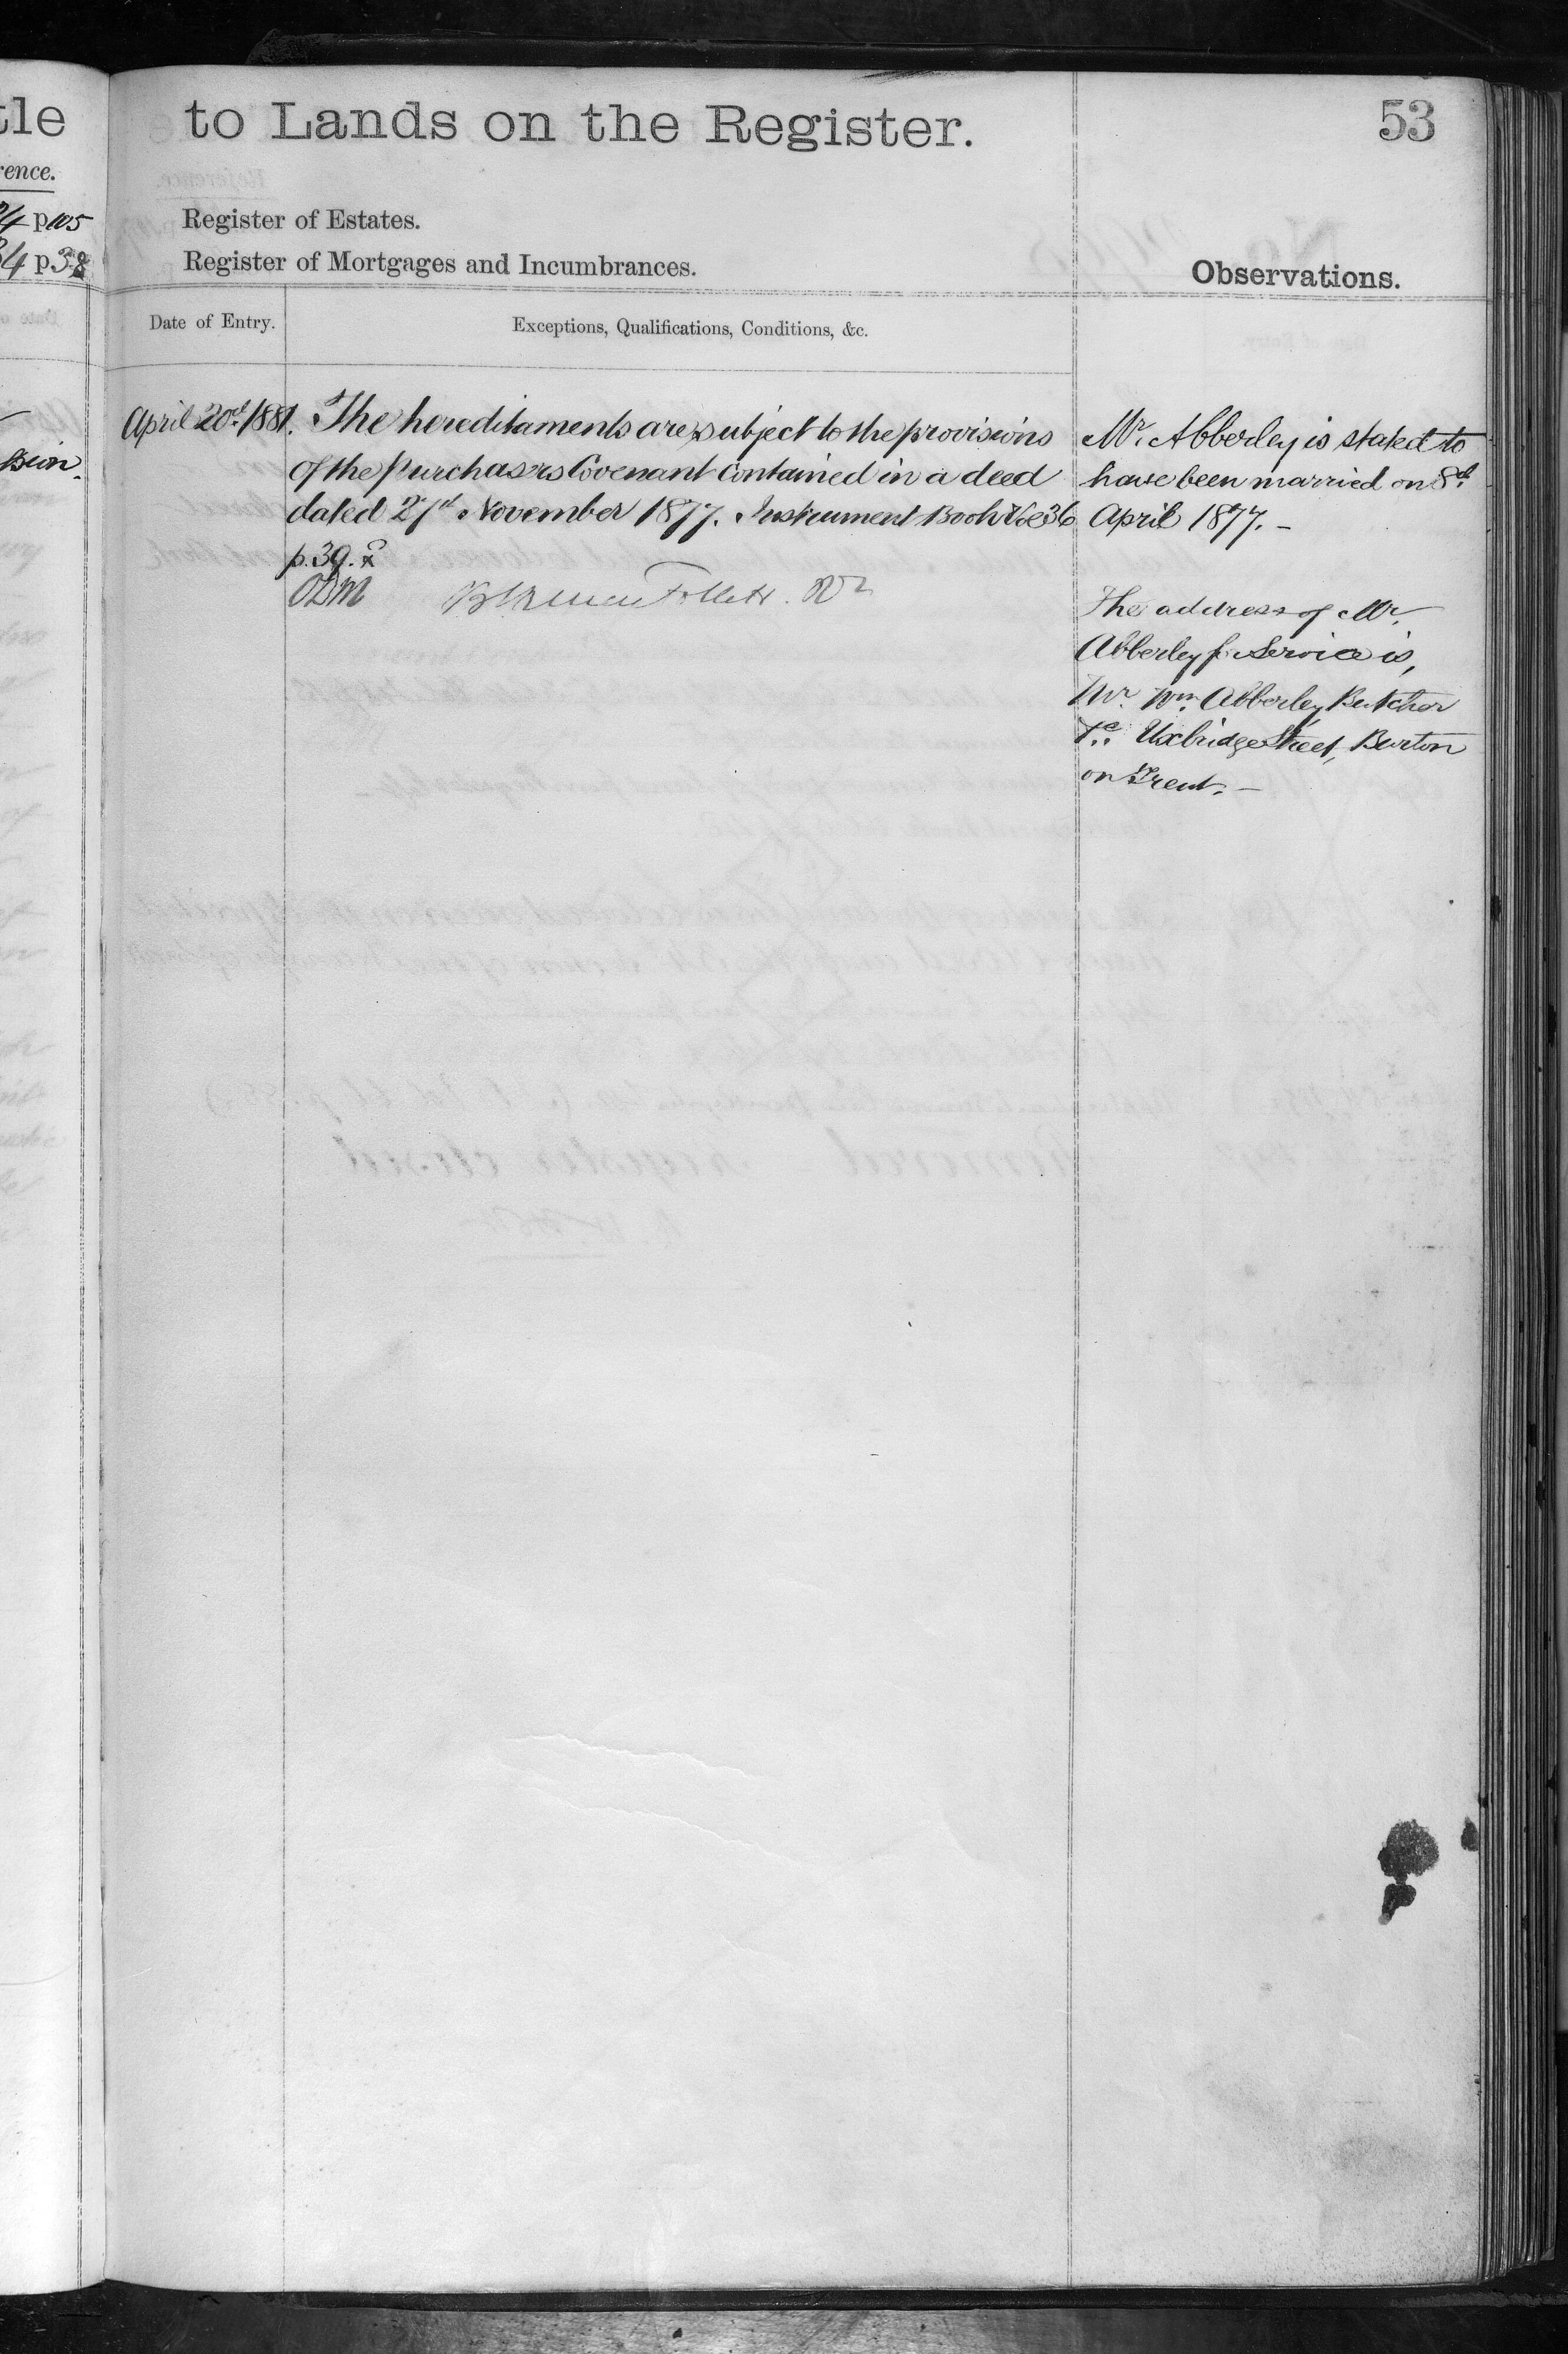 to Lands on the Register.
53
Register of Estates.
Register of Mortgages and Incumbrances.
Observations.
Date of Entry.
Exceptions, Qualifications, Conditions, &c.
April 20th 1881. The hereditaments are subject to the provisions
of the Purchasers Covenant contained in a deed
dated 27th November 1877. Instrument Book Vol 36
p. 39.
Mr. Abberley is stated to
have been married on 8th
April 1877. –
The address of Mr.
Abberley for Service is,
Mr. Wm. Abberley Butcher
Uxbridge Street, Burton
on Trent. –
tle
rence.
4 p105
34 p38